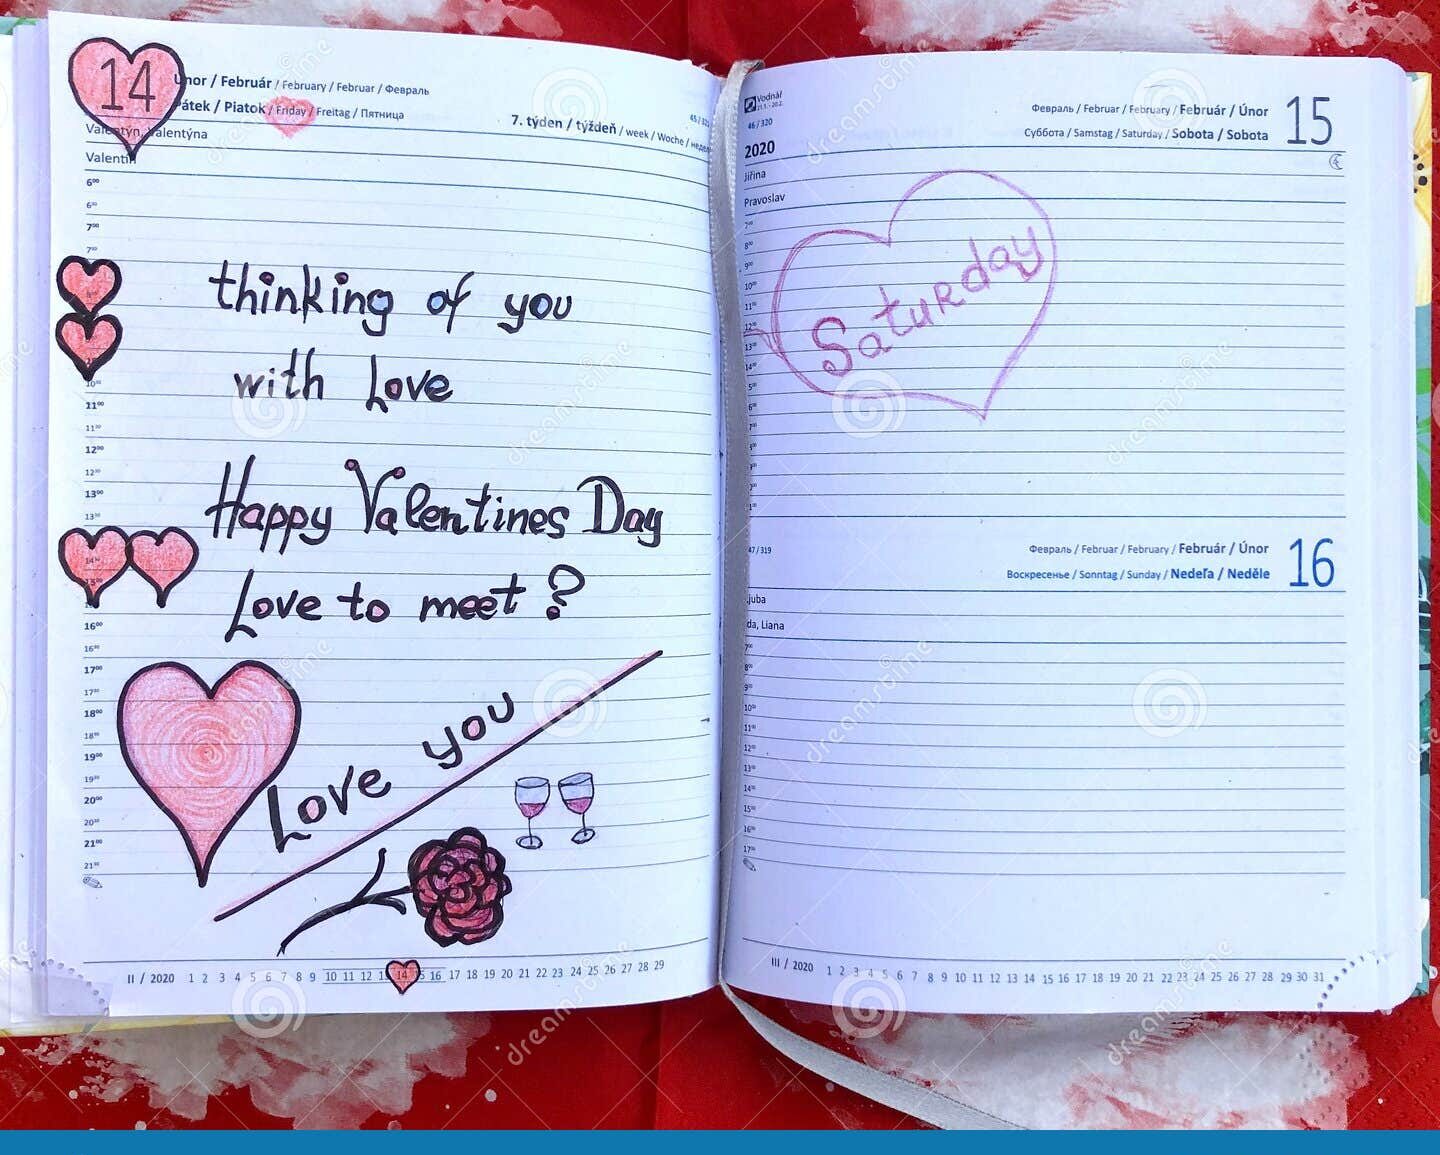 14
Únor / Február / February / Februar / Февраль
Pátek / Piatok / Friday / Freitag / Пятница
7. týden / týždeň / week / Woche /
Valentýn, Valentýna
Valentín
6⁰⁰
6³⁰
7⁰⁰
7³⁰
thinking of you
with Love
10³⁰
11⁰⁰
11³⁰
12⁰⁰
12³⁰
13⁰⁰
13³⁰
Happy Valentines Day
Love to meet?
16⁰⁰
16³⁰
17⁰⁰
17³⁰
18⁰⁰
18³⁰
19⁰⁰
19³⁰
20⁰⁰
20³⁰
21⁰⁰
21³⁰
Love you
II / 2020 1 2 3 4 5 6 7 8 9 10 11 12 13 14 15 16 17 18 19 20 21 22 23 24 25 26 27 28 29
Vodnář
21.1. - 20.2.
46 / 320
2020
Февраль / Februar / February / Február / Únor
Суббота / Samstag / Saturday / Sobota / Sobota
15
Jiřina
Pravoslav
Saturday
47 / 319
Февраль / Februar / February / Február / Únor
Воскресенье / Sonntag / Sunday / Nedeľa / Neděle
16
Ljuba
da, Liana
III / 2020 1 2 3 4 5 6 7 8 9 10 11 12 13 14 15 16 17 18 19 20 21 22 23 24 25 26 27 28 29 30 31
dreamstime